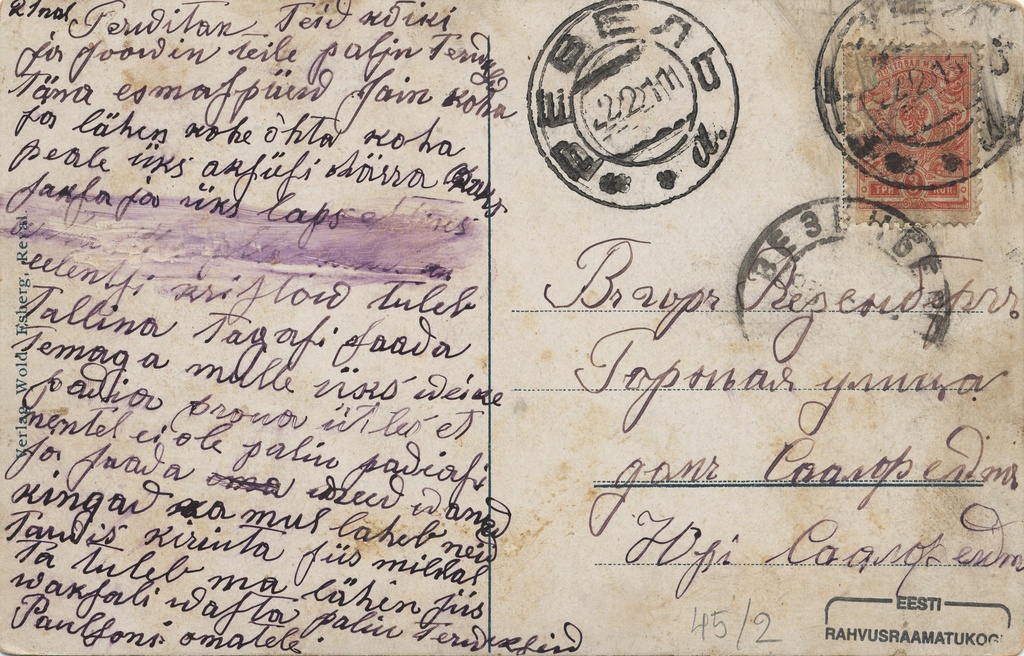 21 nal
Terwitan Teid kõiki
ja soowin teile paljn Terwist
Täna esmaspäew sain koha
ja lähen kohe õhta koha
peale üks aksüsi härra
saksa ja üks laps
kristow tuleb
Tallina Tagasi saada
Temaga mulle üks weike
padia proua ütles et
mentel ei ole paliu padiasi
ja saada weed waned
kingad ka mul laheb neid
Tarwis kirinta siis millal
ta tuleb ma lähen siis
waksali wasta paliu Terwisid
Paulsoni omatele.
Verlag Wold. Esberg, Reval.
РЕВЕЛЬ
22211
d.
ТРИ КОП
ВЕЗЕНБЕР
Въ горъ Везенбергъ.
Горновая улица
домъ Саалфельдтъ
Юрі Саалфельдт
45/2
EESTI
RAHVUSRAAMATUKOGU